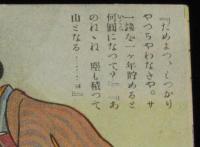 『だめよつ、しつかり
やつちやわなきや。サ
一錢を一ヶ年貯めると
何圓になつて？』『あ
のねゝね 塵も積って
山となる………さ』